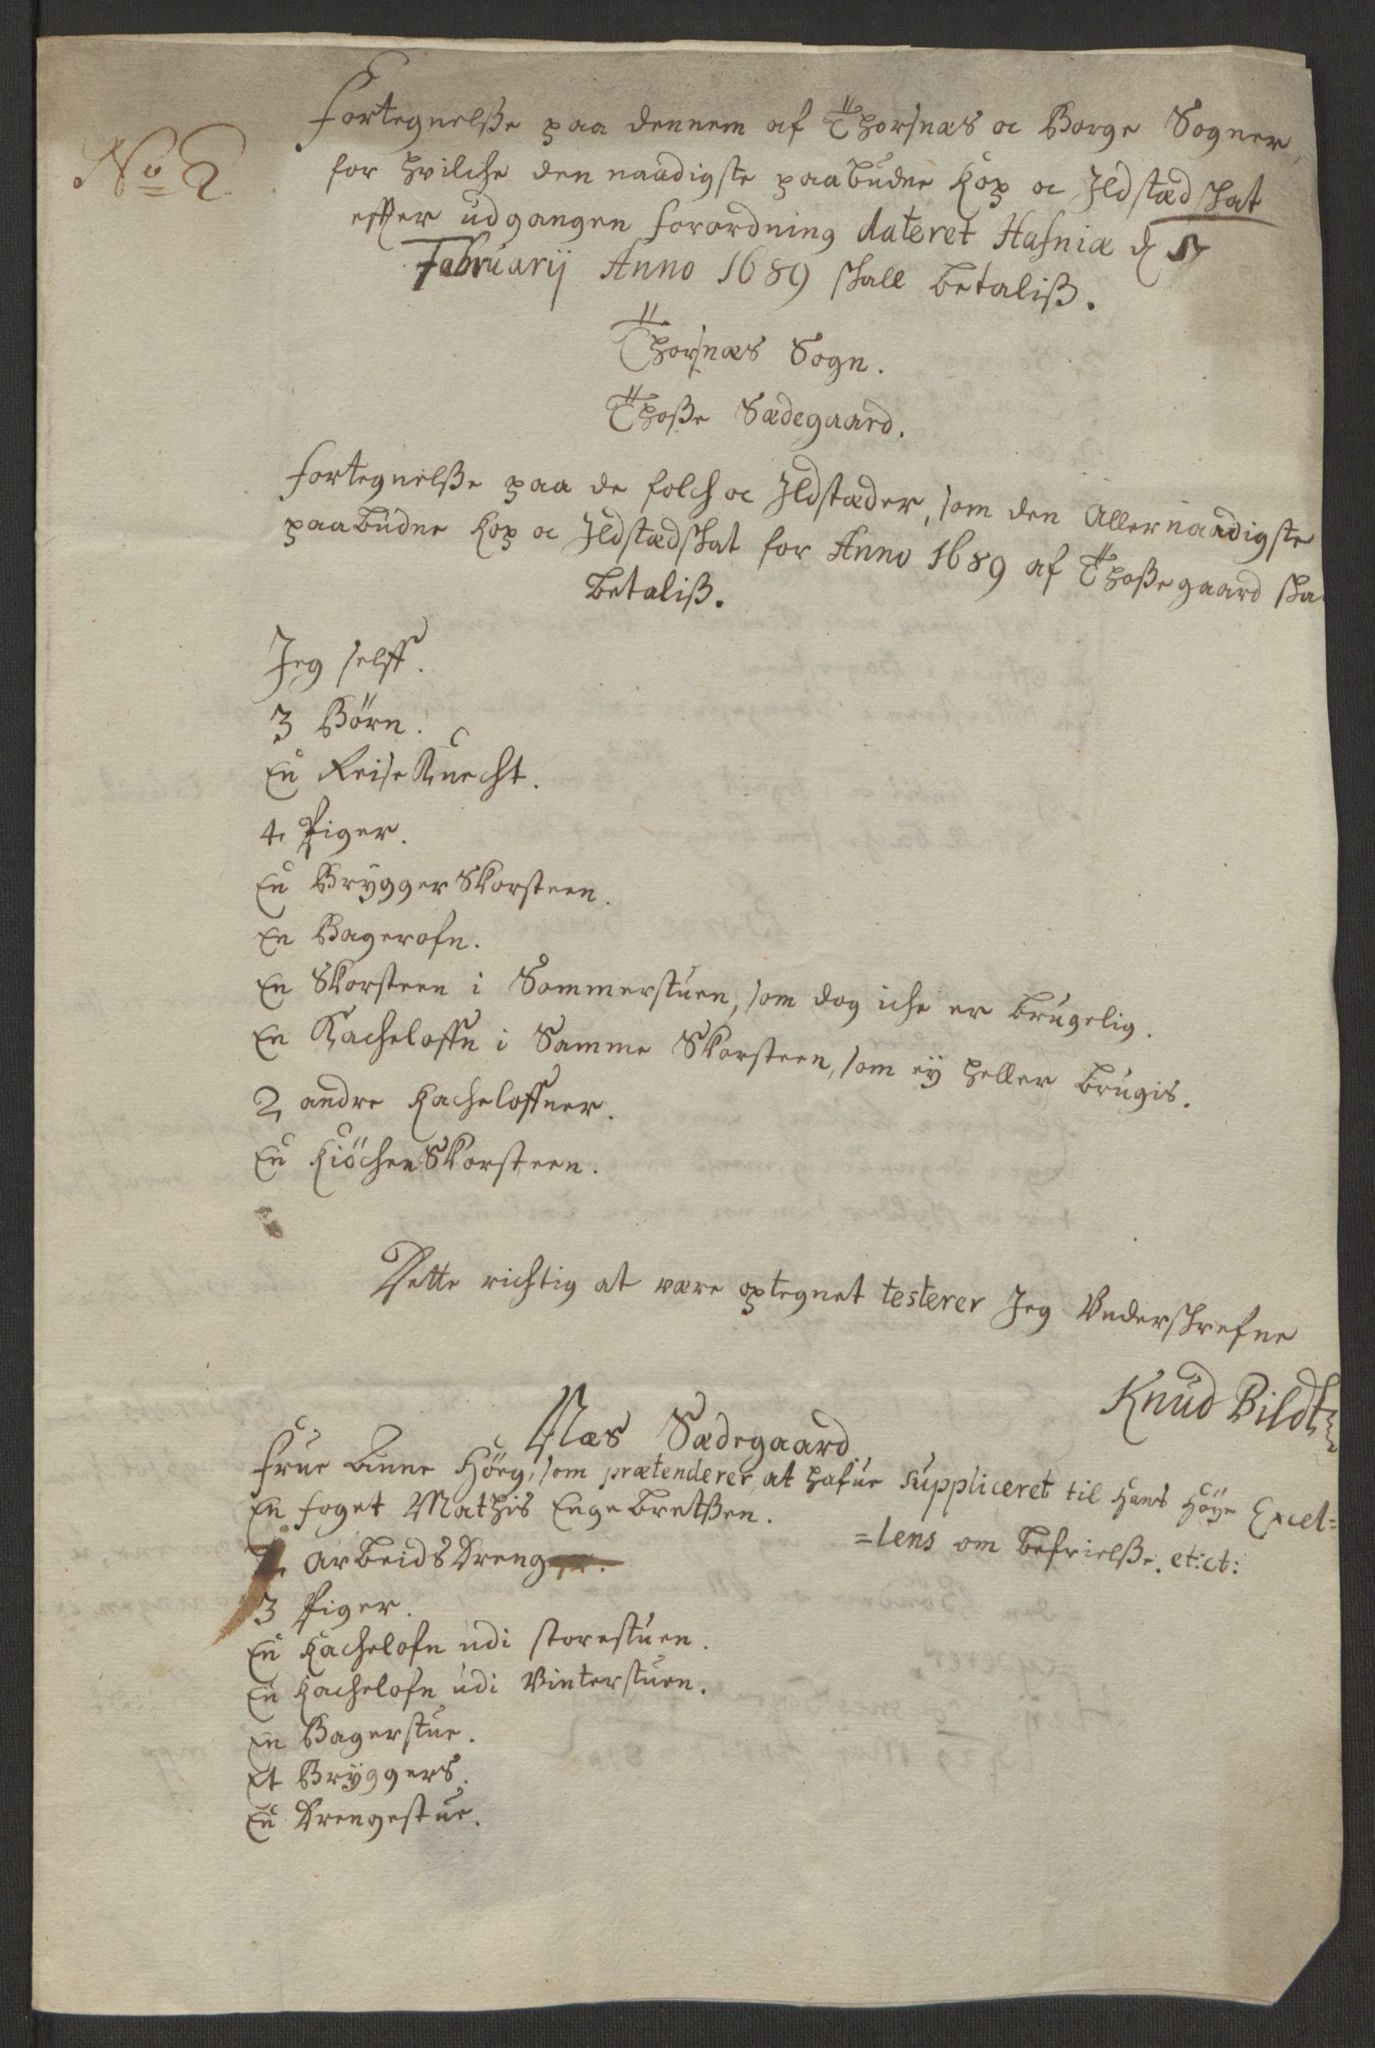 No 2
Fortegnelsse paa dennem af Thorsnæs oc Borge Sogner,
for hvilche den naadigste paabudne Kop oc Ildstædskat
effter udgangen forordning dateret Hafniæ d
Februarij Anno 1689 skall betaliss.
Thorsnæs Sogn.
Thosse Sædegaard.
Fortegnelsse paa de folch oc Ildstæder, som den Allernaadigste
paabudne Kop oc Ildstædskat for Anno 1689 af Thossegaard ska
betaliss.
Jeg selff.
3 Börn.
En Reise Knecht.
4 Piger.
En Brygger Skorsteen.
En Bagerofn.
En Skorsteen i Sommerstuen, som dog iche er brugelig.
En Kacheloffn i Samme Skorsteen, som ey heller brugis.
2 andre Kacheloffner.
En Kiöchen Skorsteen.
Dette richtig at være optegnet testerer Jeg Underskrefne
Knud Bildt
Næs Sædegaard
Frue Anne Höeg, som prætenderer, at hafue suppliceret til Hans Höye Excel=
=lens om befrielsse. et: ct:
En foget Mathis Engebretssen.
arbeids Dreng
3 Piger.
En Kachelofn udi storestuen.
En Kachelofn udi Vinterstuen.
En Bagerstue.
Et Bryggers.
En Drengestue.